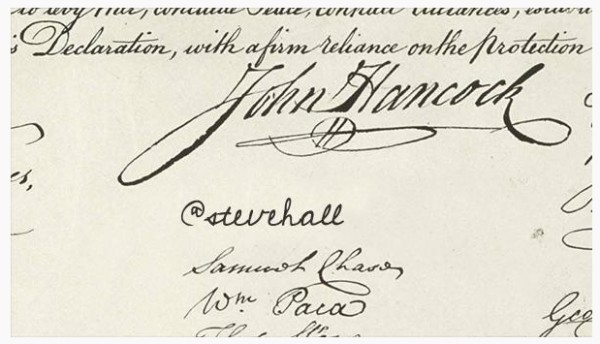 to levy War, conclude Peace, contract Alliances,
Declaration, with a firm reliance on the Protection
John Hancock
es,
@stevehall
Samuel Chase
Wm Paca
Geo